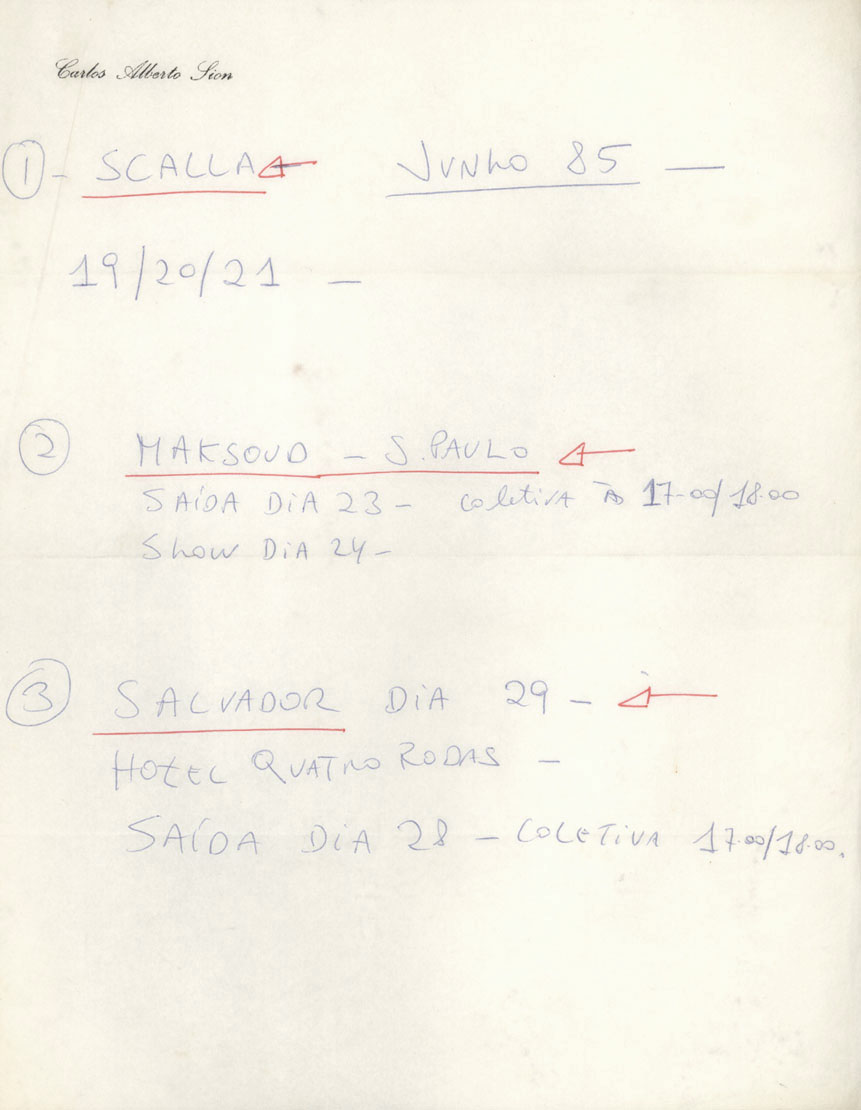 Carlos Alberto Sion
1 - SCALLA JUNHO 85 —
19/20/21 —
2 MAKSOUD - S. PAULO
SAÍDA DIA 23 - coletiva às 17.00/18.00
Show DIA 24 -
3 SALVADOR DIA 29 -
HOTEL QUATRO RODAS -
SAÍDA DIA 28 - COLETIVA 17.00/18.00.